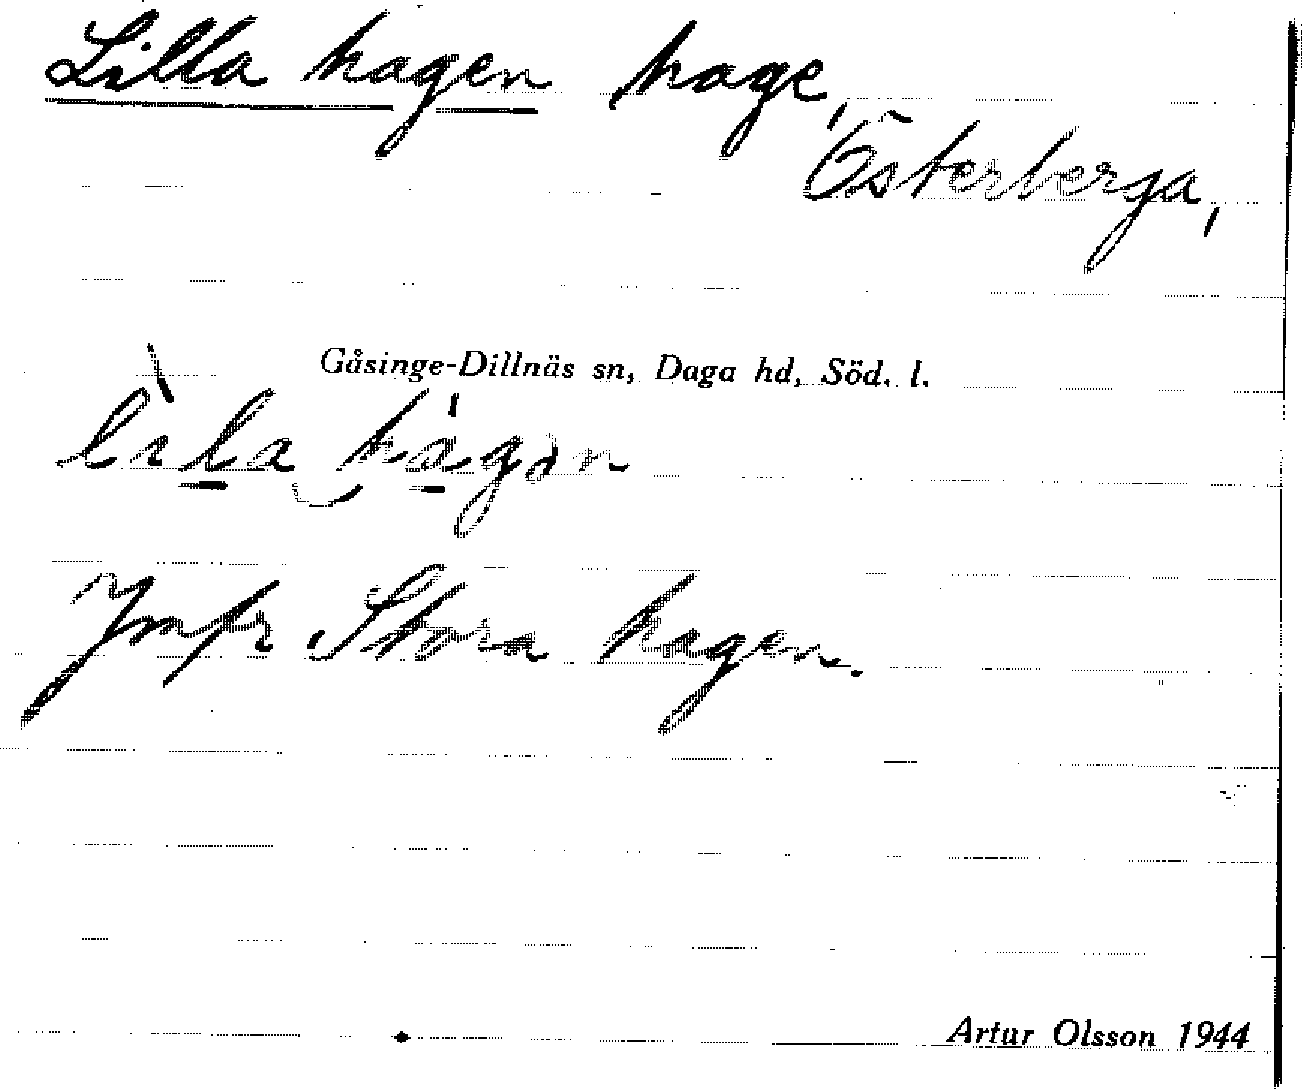 Lilla hagen hage,
Österberga,
Gåsinge-Dillnäs sn, Daga hd, Söd. l.
lìla hágən
Jmfr Stora hagen.
Artur Olsson 1944